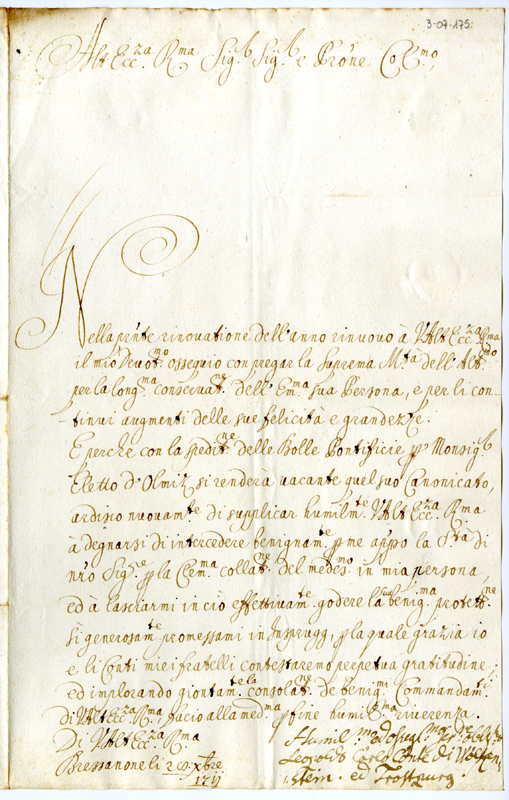 3-07-175
Alt Ecc.za R.ma Sig.r Sig.r e Pr̃one Col.mo
Nella pñte rinovatione dell'anno rinuovo à V. Alt Ecc.za R.ma
il mio Devot.mo osseguio con pregar la Suprema M.tà dell' Alt.mo
per la long.ma conservat.ne dell' Em.ma sua Persona, e per li con-
tinui augmenti delle sue felicità e grandezze.
E perche con la spedit.ne delle Bolle Pontificie p Monsig.r
Eletto d'Olmiz si renderà vacante quel suo Canonicato,
ardisco nuovam.te di supplicar humilm.te V. Alt Ecc.za R.ma
à degnarsi di intercedere benignam.te p me app̃o la S.tà di
nr̃o Sig.re p la Clem.ma collat.ne del medes.mo in mia persona,
ed à lasciarmi in ciò effettivam.te godere la sua benig.ma protet.ne
sì generosam.te promessami in Insprugg, p la quale grazia io
e li Conti miei fratelli contestaremo perpetua gratitudine;
ed implorando giontam.te la consolat.ne de benig.mi Commandam.ti
di V. Alt Ecc.za R.ma, facio alla med.ma p fine humil.ma riverenza.
Di V. Alt Ecc.za R.ma
Bressanone li 29 Xbre
1711
Humil.mo
Leopoldo Carlo Conte di Wolken-
stein ed Trostpurg.